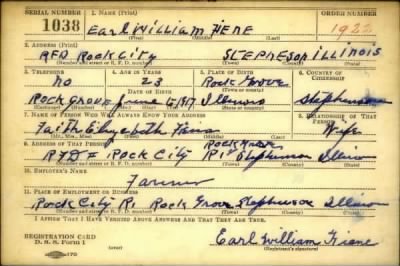 SERIAL NUMBER
1038
1. NAME (Print)
Earl William Hene
(First) (Middle) (Last)
ORDER NUMBER
1922
2. ADDRESS (Print)
RFD Rock City Stepheson Illinois
(Number and street or R. F. D. number) (Town) (County) (State)
3. TELEPHONE
no
4. AGE IN YEARS
23
5. PLACE OF BIRTH
Rock Grove
(Town or county)
6. COUNTRY OF CITIZENSHIP
Rock Grove
DATE OF BIRTH
June 6 1917
Illinois
Stephenson
7. NAME OF PERSON WHO WILL ALWAYS KNOW YOUR ADDRESS
Faith Elizabeth
(Mr., Mrs., Miss) (First) (Middle) (Last)
8. RELATIONSHIP OF THAT PERSON
Wife
9. ADDRESS OF THAT PERSON
Rock Grove
Rock City R1 Stephenson Illinois
(Number and street or R. F. D. number) (Town) (County) (State)
10. EMPLOYER'S NAME
Farmer
11. PLACE OF EMPLOYMENT OR BUSINESS
Rock City R1 Rock Grove Stephenson Illinois
(Number and street or R. F. D. number) (Town) (County) (State)
I AFFIRM THAT I HAVE VERIFIED ABOVE ANSWERS AND THAT THEY ARE TRUE.
REGISTRATION CARD
D. S. S. Form 1
Earl William
(Registrant's signature)